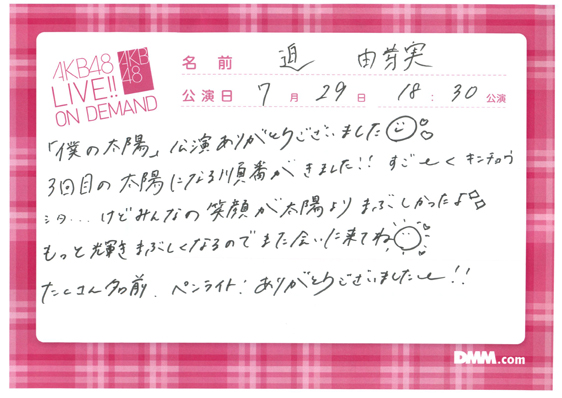 AKB48
LIVE!!
ON DEMAND
AKB
48
名前 迫 由芽実
公演日 7月29日 18:30公演
「僕の太陽」公演ありがとうございました
3回目の太陽になる順番がきました!! すごーくキンチョウ
シタ...けどみんなの笑顔が太陽よりまぶしかったよ
もっと輝きまぶしくなるのでまた会いに来てね
たくさん名前、ペンライト!ありがとうございましたー!!
DMM.com